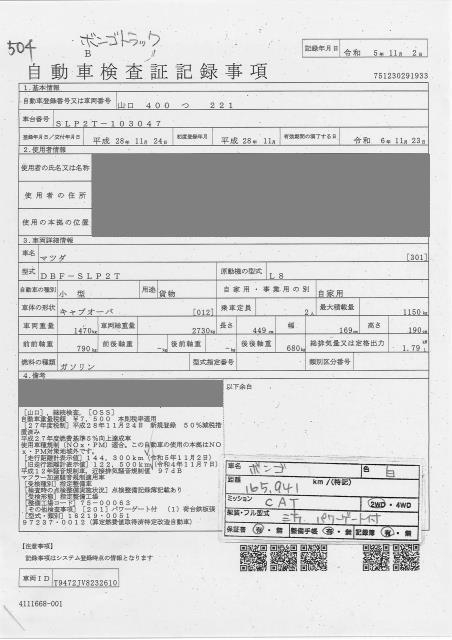 504 ボンゴトラック
B
自動車検査証記録事項
記録年月日 令和 5年11月 2日
751230291933
1.基本情報
自動車登録番号又は車両番号 山口 400 つ 221
車台番号 SLP2T-103047
登録年月日/交付年月日 平成 28年 11月 24日 初度登録年月 平成 28年 11月 有効期間の満了する日 令和 6年 11月 23日
2.使用者情報
使用者の氏名又は名称
使用者の住所
使用の本拠の位置
3.車両詳細情報
車名 マツダ [301]
型式 DBF-SLP2T 原動機の型式 L8
自動車の種別 小型 用途 貨物 自家用・事業用の別 自家用
車体の形状 キャブオーバ [012] 乗車定員 2人 最大積載量 1150kg
車両重量 1470kg 車両総重量 2730kg 長さ 449cm 幅 169cm 高さ 190cm
前前軸重 790kg 前後軸重 -kg 後前軸重 -kg 後後軸重 680kg 総排気量又は定格出力 1.79L
燃料の種類 ガソリン 型式指定番号 類別区分番号
4.備考
以下余白
[山口],継続検査,[OSS]
自動車重量税額 ¥7,500 本則税率適用
[27年度税制]平成28年11月24日 新規登録 50%減税措置済み
平成27年度燃費基準5%向上達成車
使用車種規制(NOx・PM)適合。この自動車の使用の本拠はNOx・PM対策地域外です。
[走行距離計表示値]144,300km(令和5年11月2日)
[旧走行距離計表示値]122,500km(令和4年11月7日)
平成12年騒音規制車,近接排気騒音規制値 97dB
マフラー加速騒音規制適用車
[受検種別]指定整備車
[検査時の点検整備実施状況]点検整備記録簿記載あり
[受検形態]指定整備工場
[整備工場コード]75-00063
[その他検査事項][201]パワーゲート付 (1)荷台鉄板張
[型式・類別]16219・0051
97237-0012(算定燃費値取得済特定改造自動車)
車名 ボンゴ 色 白
距離 165,941 km/(待記)
ミッション CAT 2WD・4WD
架装・フル型式 三方 パワーゲート付
保証書 有・無 整備手帳 有・無 記録簿 有・無
【注意事項】
記録事項はシステム登録時点の情報となります
車両ID T9472JV8232610
4111668-001